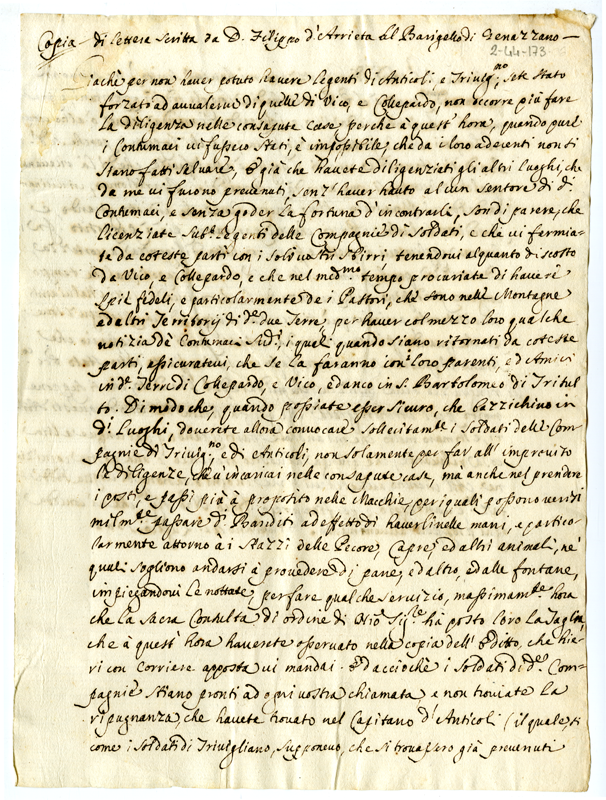 Copia di lettera scritta da D. Filippo d'Arrieta al Barigello di Genazzano
2-44-173
Giachè per non haver potuto havere le genti di Anticoli, e Trivig.no, sete stato
forzato ad avvalervi di quelle di Vico, e Collepardo, non occorre più fare
la diligenza nelle consapute case, perche à quest' hora, quando pure
i Contumaci vi fussero stati, è impossibile, che da i loro aderenti non si
siano fatti salvare, E già che havete diligenziati gli altri luoghi, che
da me vi furono prevenuti, senz' haver hauto alcun sentore di d.i
Contumaci, e senza goder la fortuna d'incontrarli, son di parere, che
licenziate sub.o le genti delle Compagnie di soldati, e che vi fermia-
te da coteste parti con i soli vostri sbirri, tenendovi alquanto discosto
da Vico, e Collepardo, e che nel med.mo tempo procuriate di havere
spie fideli, e particolarmente de Pastori, che sono nelle Montagne
ed altri Territorij di d.e due Terre, per haver col mezzo loro qualche
notizia de Contumaci sud.i, i quali quando siano ritornati da coteste
parti, assicuratevi, che se la faranno con i loro parenti, ed Amici
in d.e Terre di Collepardo, e Vico, ed anco in S. Bartolomeo di Trisul-
to. Di modo che, quando possiate esser sicuro, che bazzichino in
d.i luoghi, doverete allora convocare sollecitam.te i soldati delle Com-
pagnie di Trivig.no, e di Anticoli, non solamente per far all' improviso
le diligenze, che v'incaricai nelle consapute case, ma anche nel prendere
i posti, e passi più à proposito nelle Macchie, per i quali possono verisi-
milm.te passare d.i Banditi ad effetto di haverli nelle mani, e partico-
larmente attorno à i stazzi delle Pecore, Capre, ed altri animali, ne'
quali sogliono andarsi à provedere di pane, ed altro, ed alle fontane,
impiegandovi le nottate, per fare qualche servizio, massimam.te hora
che la Sacra Consulta di ordine di N.ro Sig.re hà posto loro la Taglia,
che à quest' hora haverete osservato nella copia dell' Editto, che hie-
ri con Corriere apposta vi mandai. Ed acciochè i soldati di d.e Com-
pagnie stiano pronti ad ogni vostra chiamata, e non troviate la
ripugnanza, che havete trovato nel Capitano d'Anticoli (il quale, sì
come i soldati di Trivigliano, supponevo, che si trovassero già prevenuti